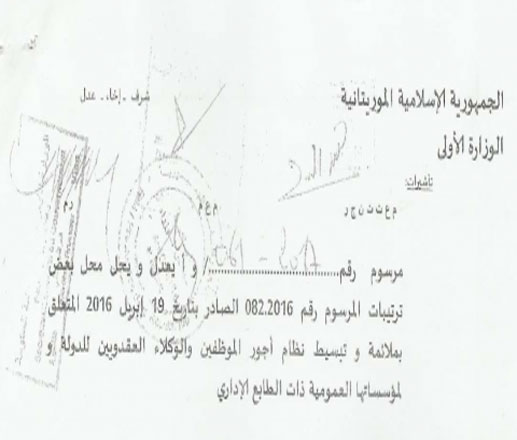 الجمهورية الإسلامية الموريتانية
شرف - إخاء - عدل
الوزارة الأولى
تأشيرات:
م ع ت ت ن ج ر
م ع م
مرسوم رقم 2017 - 061 / و أ يعدل و يحل محل بعض
ترتيبات المرسوم رقم 082.2016 الصادر بتاريخ 19 إبريل 2016 المتعلق
بملائمة و تبسيط نظام أجور الموظفين والوكلاء العقدويين للدولة و
لمؤسساتها العمومية ذات الطابع الإداري